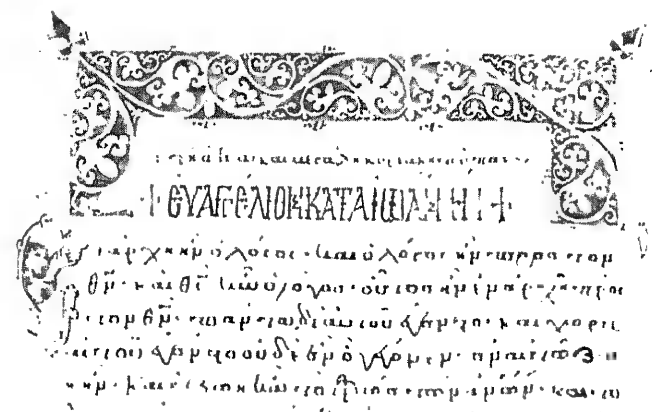 + ΕΥΑΓΓΕΛΙΟΝ ΚΑΤΑ ΙΩΑΝΝΗΝ +
ἐν ἀρχῆ ἦν ὁ λόγος· καὶ ὁ λόγος ἦν πρὸς τὸν
θν̅· καὶ θς̅ ἦν ὁ λόγος· οὗτος ἦν ἐν ἀρχῆ πρὸς
τὸν θν̅· πάντα δι αὐτοῦ ἐγένετο· καὶ χωρὶς
αὐτοῦ ἐγένετο οὐδὲ ἓν ὃ γέγονεν· ἐν αὐτῶ ζωὴ
ἦν· καὶ ἡ ζωὴ ἦν τὸ φῶς τῶν ἀνω̅ν· καὶ τὸ